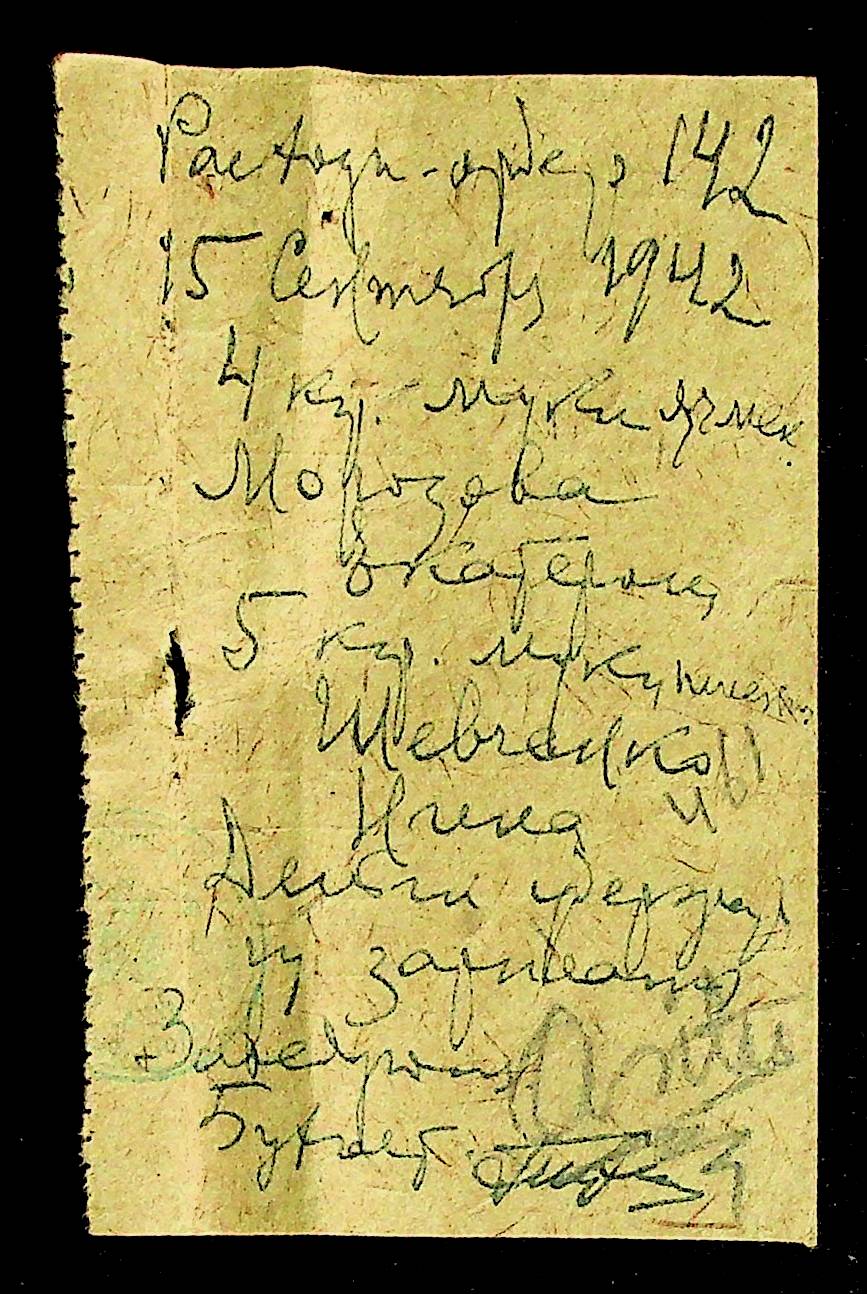 Расходн-ордер 142
15 Сентября 1942
4 кгр. муки ячмен.
Морозова
Екатерина
5 кгр. муки
Шевченко
Нина
Деньги удержать
из зарплаты
Заведующ.
Бухгалт.